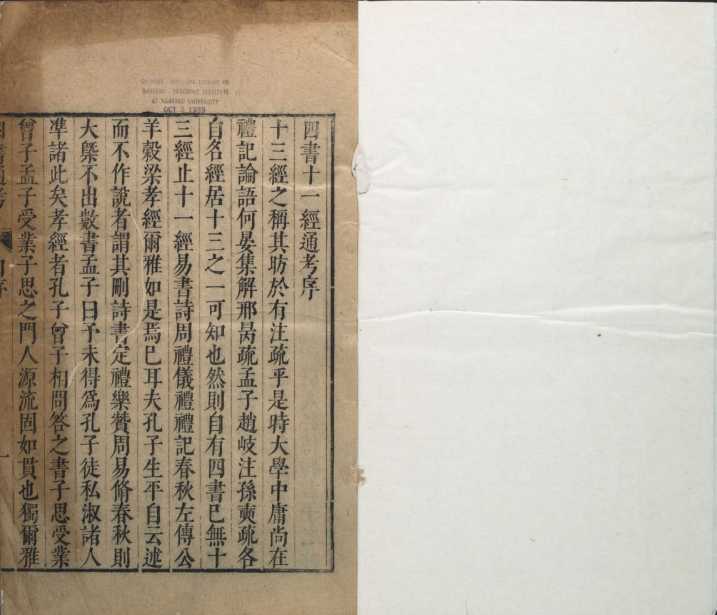 CHINESE - JAPANESE LIBRARY OF
HARVARD - YENCHING INSTITUTE
AT HARVARD UNIVERSITY
OCT 1939
四書十一經通考序
十三經之稱其昉於有注疏乎是時大學中庸尚在
禮記論語何晏集解邢昺疏孟子趙岐注孫奭疏各
自名經居十三之一可知也然則自有四書已無十
三經止十一經易書詩周禮儀禮禮記春秋左傳公
羊穀梁孝經爾雅如是焉已耳夫孔子生平自云述
而不作說者謂其刪詩書定禮樂贊周易脩春秋則
大槩不出數書孟子曰予未得爲孔子徒私淑諸人
準諸此矣孝經者孔子曾子相問答之書子思受業
曾子孟子受業子思之門人源流固如貫也獨爾雅
四書通考
序
一